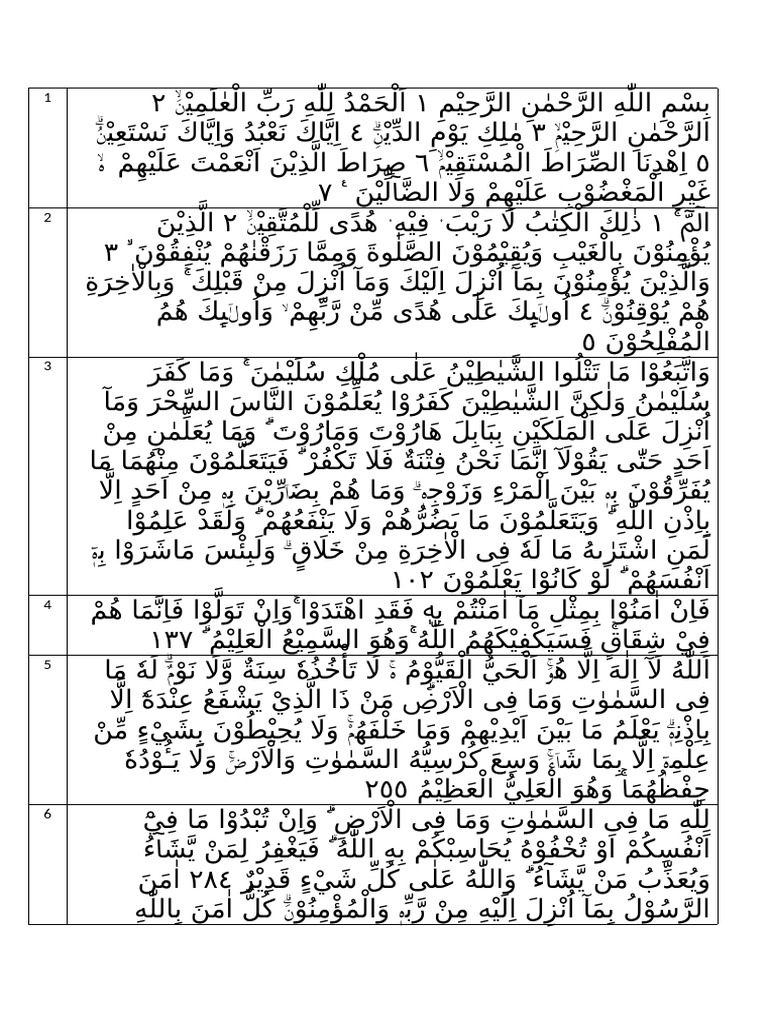 1
بِسْمِ اللّٰهِ الرَّحْمٰنِ الرَّحِيْمِ ١ اَلْحَمْدُ لِلّٰهِ رَبِّ الْعٰلَمِيْنَۙ ٢
الرَّحْمٰنِ الرَّحِيْمِۙ ٣ مٰلِكِ يَوْمِ الدِّيْنِۗ ٤ اِيَّاكَ نَعْبُدُ وَاِيَّاكَ نَسْتَعِيْنُۗ
٥ اِهْدِنَا الصِّرَاطَ الْمُسْتَقِيْمَۙ ٦ صِرَاطَ الَّذِيْنَ اَنْعَمْتَ عَلَيْهِمْ ەۙ
غَيْرِ الْمَغْضُوْبِ عَلَيْهِمْ وَلَا الضَّاۤلِّيْنَ ۚ ٧
2
الۤمّۤ ۚ ١ ذٰلِكَ الْكِتٰبُ لَا رَيْبَ ۛ فِيْهِ ۛ هُدًى لِّلْمُتَّقِيْنَۙ ٢ الَّذِيْنَ
يُؤْمِنُوْنَ بِالْغَيْبِ وَيُقِيْمُوْنَ الصَّلٰوةَ وَمِمَّا رَزَقْنٰهُمْ يُنْفِقُوْنَ ۙ ٣
وَالَّذِيْنَ يُؤْمِنُوْنَ بِمَآ اُنْزِلَ اِلَيْكَ وَمَآ اُنْزِلَ مِنْ قَبْلِكَ ۚ وَبِالْاٰخِرَةِ
هُمْ يُوْقِنُوْنَۗ ٤ اُولٰۤىِٕكَ عَلٰى هُدًى مِّنْ رَّبِّهِمْ ۙ وَاُولٰۤىِٕكَ هُمُ
الْمُفْلِحُوْنَ ٥
3
وَاتَّبَعُوْا مَا تَتْلُوا الشَّيٰطِيْنُ عَلٰى مُلْكِ سُلَيْمٰنَ ۚ وَمَا كَفَرَ
سُلَيْمٰنُ وَلٰكِنَّ الشَّيٰطِيْنَ كَفَرُوْا يُعَلِّمُوْنَ النَّاسَ السِّحْرَ وَمَآ
اُنْزِلَ عَلَى الْمَلَكَيْنِ بِبَابِلَ هَارُوْتَ وَمَارُوْتَ ۗ وَمَا يُعَلِّمٰنِ مِنْ
اَحَدٍ حَتّٰى يَقُوْلَآ اِنَّمَا نَحْنُ فِتْنَةٌ فَلَا تَكْفُرْ ۗ فَيَتَعَلَّمُوْنَ مِنْهُمَا مَا
يُفَرِّقُوْنَ بِهٖ بَيْنَ الْمَرْءِ وَزَوْجِهٖ ۗ وَمَا هُمْ بِضَاۤرِّيْنَ بِهٖ مِنْ اَحَدٍ اِلَّا
بِاِذْنِ اللّٰهِ ۗ وَيَتَعَلَّمُوْنَ مَا يَضُرُّهُمْ وَلَا يَنْفَعُهُمْ ۗ وَلَقَدْ عَلِمُوْا
لَمَنِ اشْتَرٰىهُ مَا لَهٗ فِى الْاٰخِرَةِ مِنْ خَلَاقٍ ۗ وَلَبِئْسَ مَاشَرَوْا بِهٖٓ
اَنْفُسَهُمْ ۗ لَوْ كَانُوْا يَعْلَمُوْنَ ١٠٢
4
فَاِنْ اٰمَنُوْا بِمِثْلِ مَآ اٰمَنْتُمْ بِهٖ فَقَدِ اهْتَدَوْا ۚوَاِنْ تَوَلَّوْا فَاِنَّمَا هُمْ
فِيْ شِقَاقٍۚ فَسَيَكْفِيْكَهُمُ اللّٰهُ ۚوَهُوَ السَّمِيْعُ الْعَلِيْمُ ۗ ١٣٧
5
اَللّٰهُ لَآ اِلٰهَ اِلَّا هُوَۚ اَلْحَيُّ الْقَيُّوْمُ ەۚ لَا تَأْخُذُهٗ سِنَةٌ وَّلَا نَوْمٌۗ لَهٗ مَا
فِى السَّمٰوٰتِ وَمَا فِى الْاَرْضِۗ مَنْ ذَا الَّذِيْ يَشْفَعُ عِنْدَهٗٓ اِلَّا
بِاِذْنِهٖۗ يَعْلَمُ مَا بَيْنَ اَيْدِيْهِمْ وَمَا خَلْفَهُمْۚ وَلَا يُحِيْطُوْنَ بِشَيْءٍ مِّنْ
عِلْمِهٖٓ اِلَّا بِمَا شَاۤءَۚ وَسِعَ كُرْسِيُّهُ السَّمٰوٰتِ وَالْاَرْضَۚ وَلَا يَـُٔوْدُهٗ
حِفْظُهُمَاۚ وَهُوَ الْعَلِيُّ الْعَظِيْمُ ٢٥٥
6
لِلّٰهِ مَا فِى السَّمٰوٰتِ وَمَا فِى الْاَرْضِ ۗ وَاِنْ تُبْدُوْا مَا فِيْٓ
اَنْفُسِكُمْ اَوْ تُخْفُوْهُ يُحَاسِبْكُمْ بِهِ اللّٰهُ ۗ فَيَغْفِرُ لِمَنْ يَّشَاۤءُ
وَيُعَذِّبُ مَنْ يَّشَاۤءُ ۗ وَاللّٰهُ عَلٰى كُلِّ شَيْءٍ قَدِيْرٌ ٢٨٤ اٰمَنَ
الرَّسُوْلُ بِمَآ اُنْزِلَ اِلَيْهِ مِنْ رَّبِّهٖ وَالْمُؤْمِنُوْنَۗ كُلٌّ اٰمَنَ بِاللّٰهِ